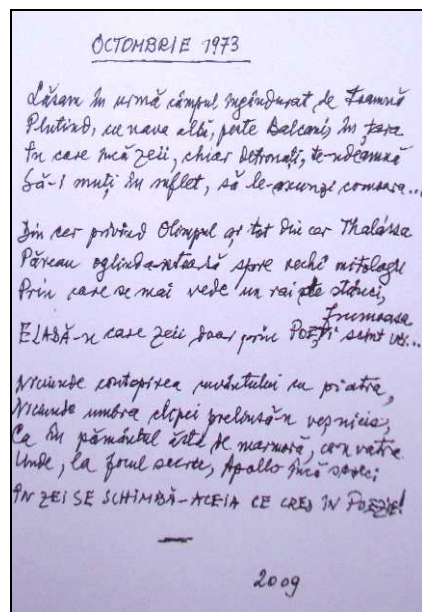 OCTOMBRIE 1973
Lăsam în urmă câmpul îngândurat de toamnă
Plutind, cu nava albă, peste Balcani, în țara
În care încă zeii, chiar detronați, te-ndeamnă
Să-i muți în suflet, să le-ascunzi comoara...
Din cer privind Olimpul și tot din cer Thalássa
Păreau oglinda întoarsă spre vechi mitologii
Prin care se mai vede un rai de stânci,
frumoasa
ELADĂ-n care zeii doar prin POEȚI sunt vii...
Niciunde contopirea cuvântului cu piatra,
Niciunde umbra clipei prelinsă-n veșnicie,
Ca în pământul ăsta de marmoră, cu vatra
Unde, la focul sacru, Apollo încă
ÎN ZEI SE SCHIMBĂ-ACEIA CE CRED ÎN POEZIE!
2009